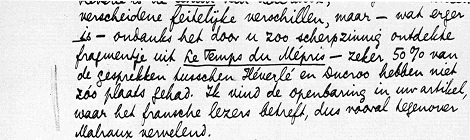 verscheidene feitelijke verschillen, maar – wat erger
is – ondanks het door u zoo scherpzinnig ontdekte
fragmentje uit Le Temps du Mépris – zeker 50% van
de gesprekken tusschen Héverlé en Ducroo hebben niet
zóó plaats gehad. Ik vind de openbaring in uw artikel,
waar het fransche lezers betreft, dus vooral tegenover
Malraux vervelend.